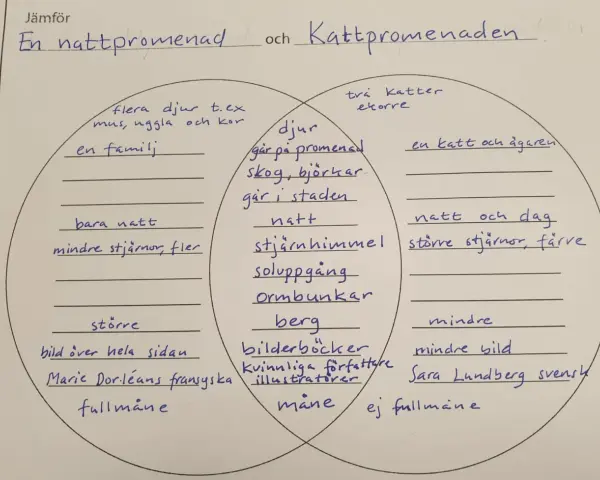 Jämför
En nattpromenad och Kattpromenaden
flera djur t.ex
mus, uggla och kor
en familj
bara natt
mindre stjärnor, fler
större
bild över hela sidan
Marie Dorléans fransyska
fullmåne
djur
går på promenad
skog, björkar
går i staden
natt
stjärnhimmel
soluppgång
ormbunkar
berg
bilderböcker
kvinnliga författare
illustratörer
måne
två katter
ekorre
en katt och ägaren
natt och dag
större stjärnor, färre
mindre
mindre bild
Sara Lundberg svensk
ej fullmåne